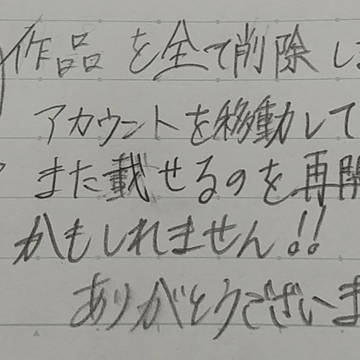 作品を全て削除し
アカウントを移動して
また載せるのを再開
かもしれません!!
ありがとうございま